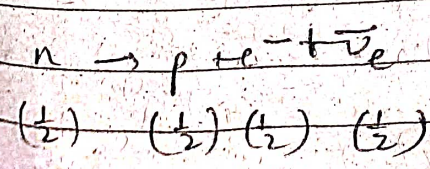 n → p + e⁻ + ν̄e
(1/2) (1/2) (1/2) (1/2)